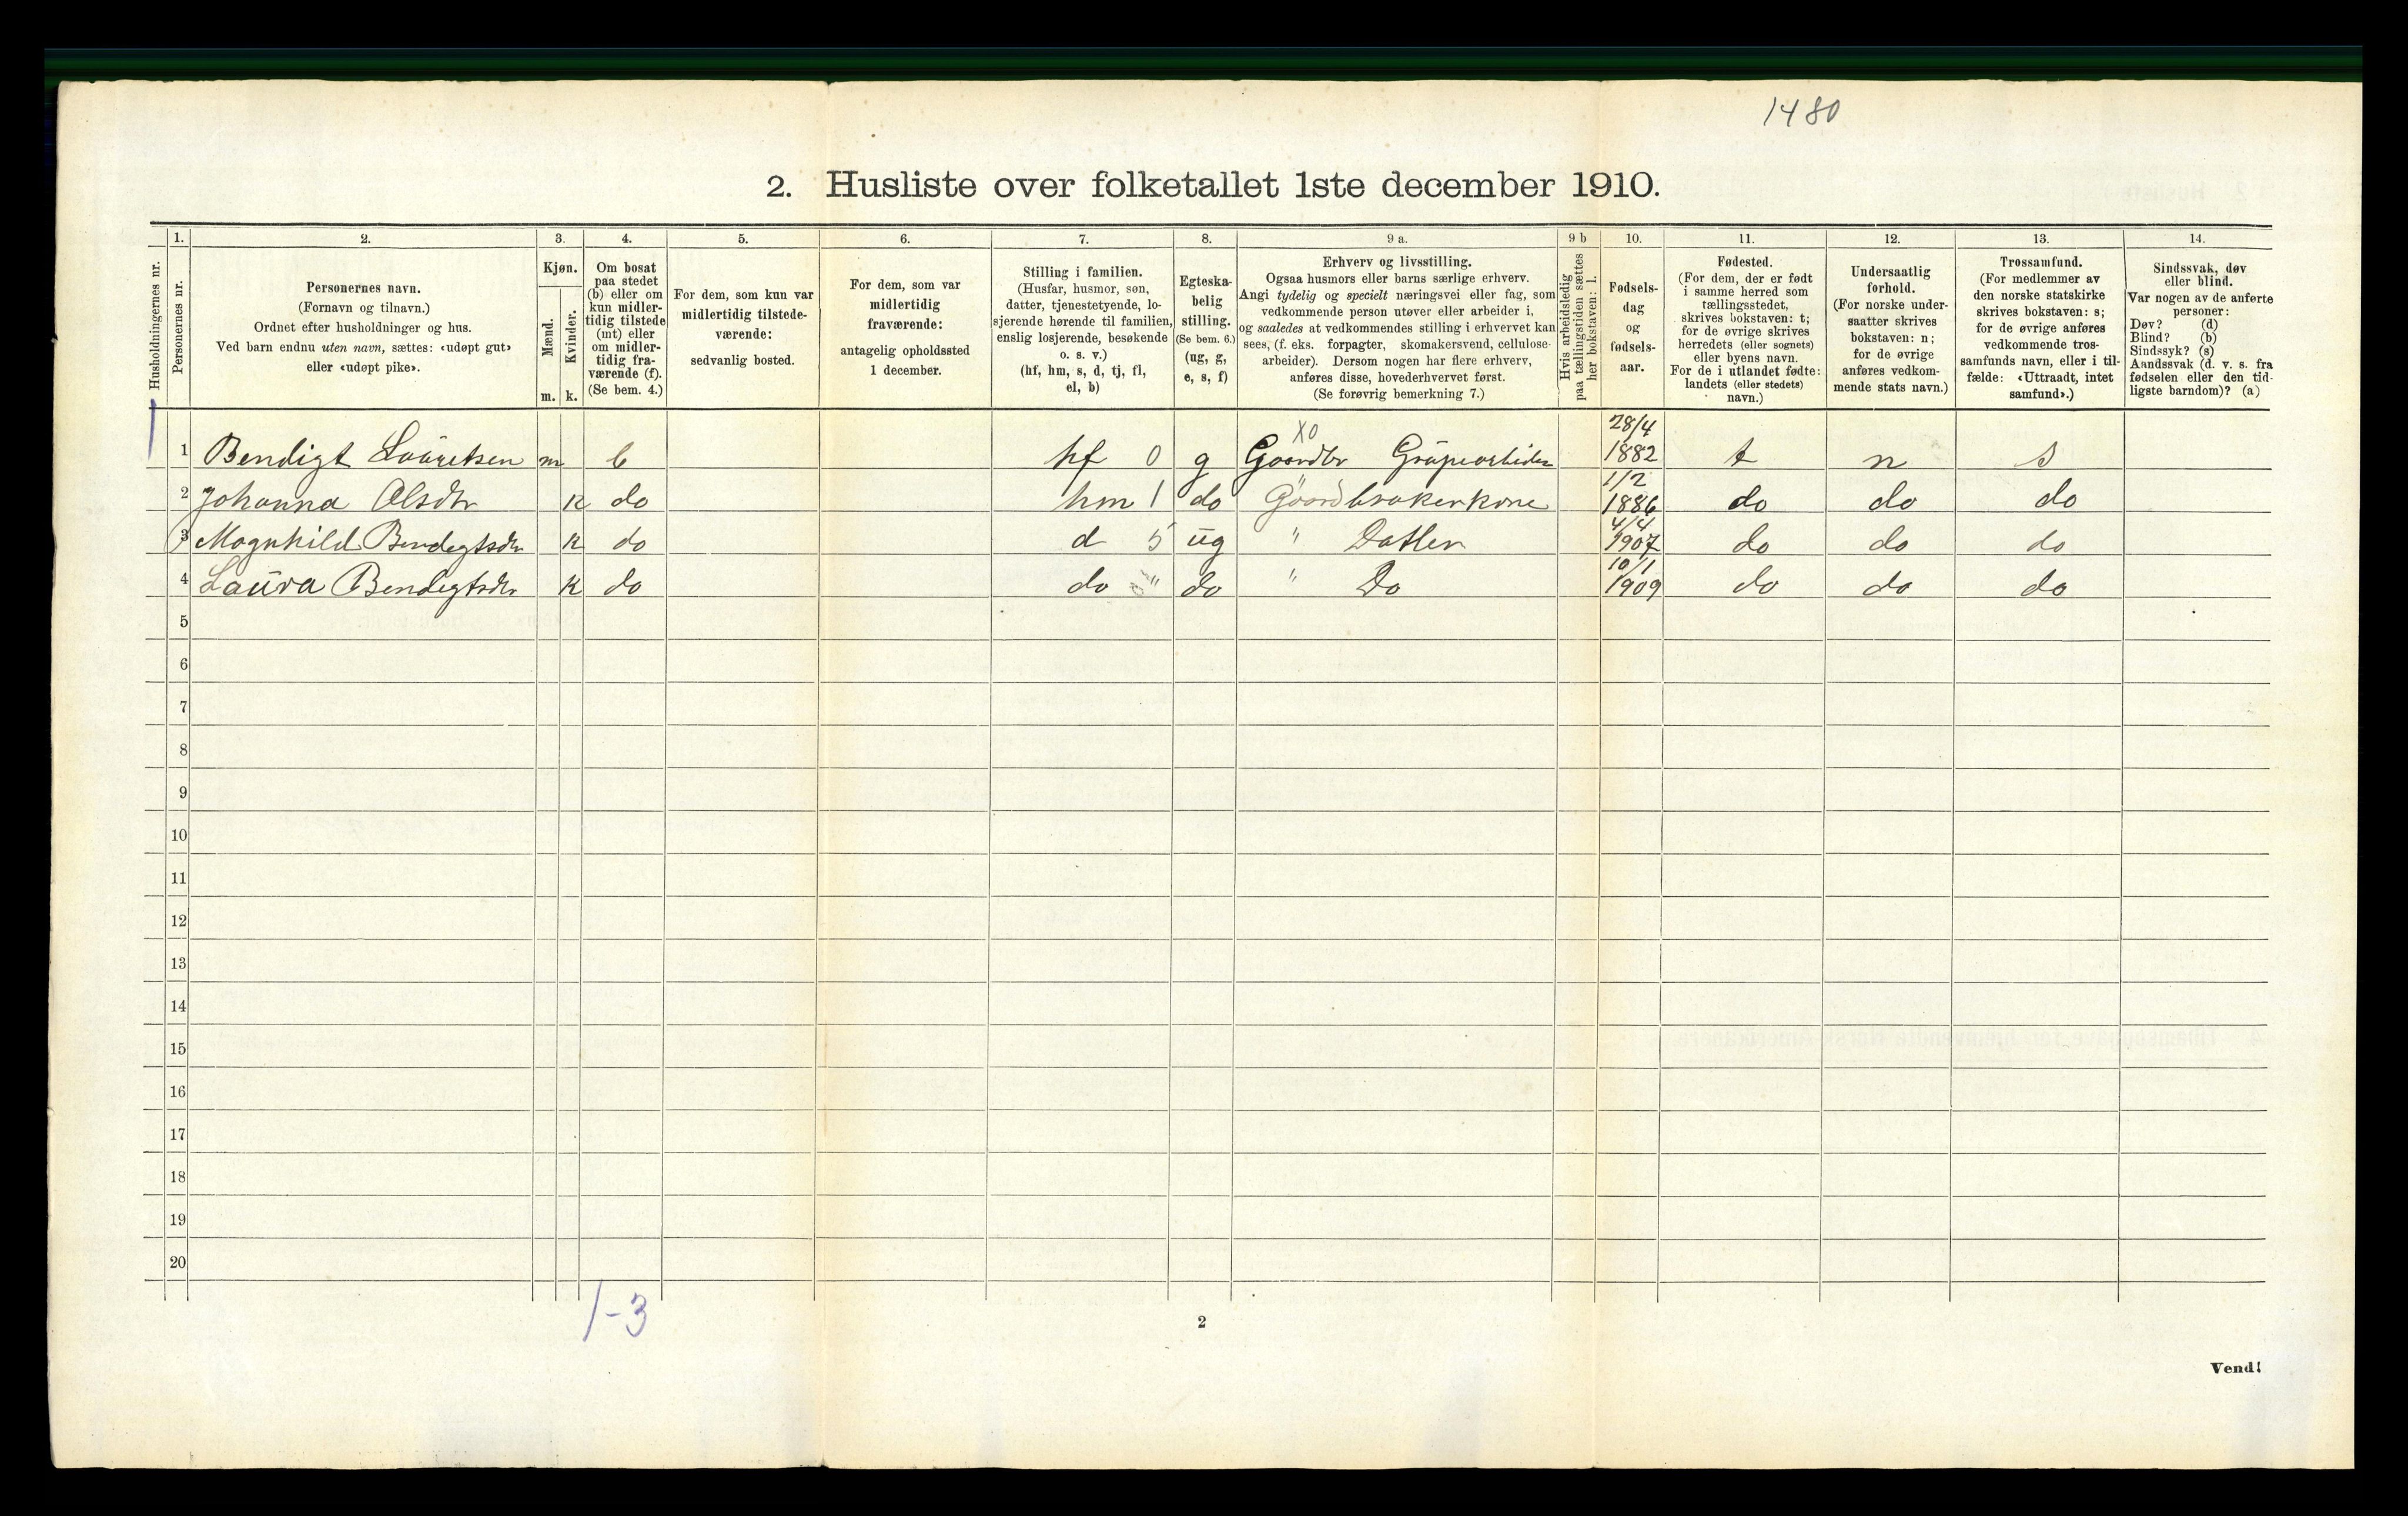 1480
2. Husliste over folketallet 1ste december 1910.
1. 2. 3. 4. 5. 6. 7. 8. 9 a. 9 b 10. 11. 12. 13. 14.
Husholdningernes nr.
Personernes nr.
Personernes navn.
(Fornavn og tilnavn.)
Ordnet efter husholdninger og hus.
Ved barn endnu uten navn, sættes: «udøpt gut»
eller «udøpt pike».
Kjøn.
Mænd.
Kvinder.
m. k.
Om bosat
paa stedet
(b) eller om
kun midler-
tidig tilstede
(mt) eller
om midler-
tidig fra-
værende (f).
(Se bem. 4.)
For dem, som kun var
midlertidig tilstede-
værende:
sedvanlig bosted.
For dem, som var
midlertidig
fraværende:
antagelig opholdssted
1 december.
Stilling i familien.
(Husfar, husmor, søn,
datter, tjenestetyende, lo-
sjerende hørende til familien,
enslig losjerende, besøkende
o. s. v.)
(hf, hm, s, d, tj, fl,
el, b)
Egteska-
belig
stilling.
(Se bem. 6.)
(ug, g,
e, s, f)
Erhverv og livsstilling.
Ogsaa husmors eller barns særlige erhverv.
Angi tydelig og specielt næringsvei eller fag, som
vedkommende person utøver eller arbeider i,
og saaledes at vedkommendes stilling i erhvervet kan
sees, (f. eks. forpagter, skomakersvend, cellulose-
arbeider). Dersom nogen har flere erhverv,
anføres disse, hovederhvervet først.
(Se forøvrig bemerkning 7.)
Hvis arbeidsledig
paa tællingstiden sættes
her bokstaven: l.
Fødsels-
dag
og
fødsels-
aar.
Fødested.
(For dem, der er født
i samme herred som
tællingsstedet,
skrives bokstaven: t;
for de øvrige skrives
herredets (eller sognets)
eller byens navn.
For de i utlandet fødte:
landets (eller stedets)
navn.)
Undersaatlig
forhold.
(For norske under-
saatter skrives
bokstaven: n;
for de øvrige
anføres vedkom-
mende stats navn.)
Trossamfund.
(For medlemmer av
den norske statskirke
skrives bokstaven: s;
for de øvrige anføres
vedkommende tros-
samfunds navn, eller i til-
fælde: «Uttraadt, intet
samfund».)
Sindssvak, døv
eller blind.
Var nogen av de anførte
personer:
Døv? (d)
Blind? (b)
Sindssyk? (s)
Aandssvak (d. v. s. fra
fødselen eller den tid-
ligste barndom)? (a)
X0 28/4
1 Bendigt Lauretsen m b hf 0 g Gaardbr Grupearbider 1882 t n s
1/2
2 Johanna Olsdtr k do hm 1 do Gaardbrukerkone 1886 do do do
4/4
3 Magnhild Bendegtsdr k do d 5 ug " Datter 1907 do do do
10/1
4 Laura Bendegtsdr k do do " do " Do 1909 do do do
5
6
7
8
9
10
11
12
13
14
15
16
17
18
19
20
1-3
2
Vend!